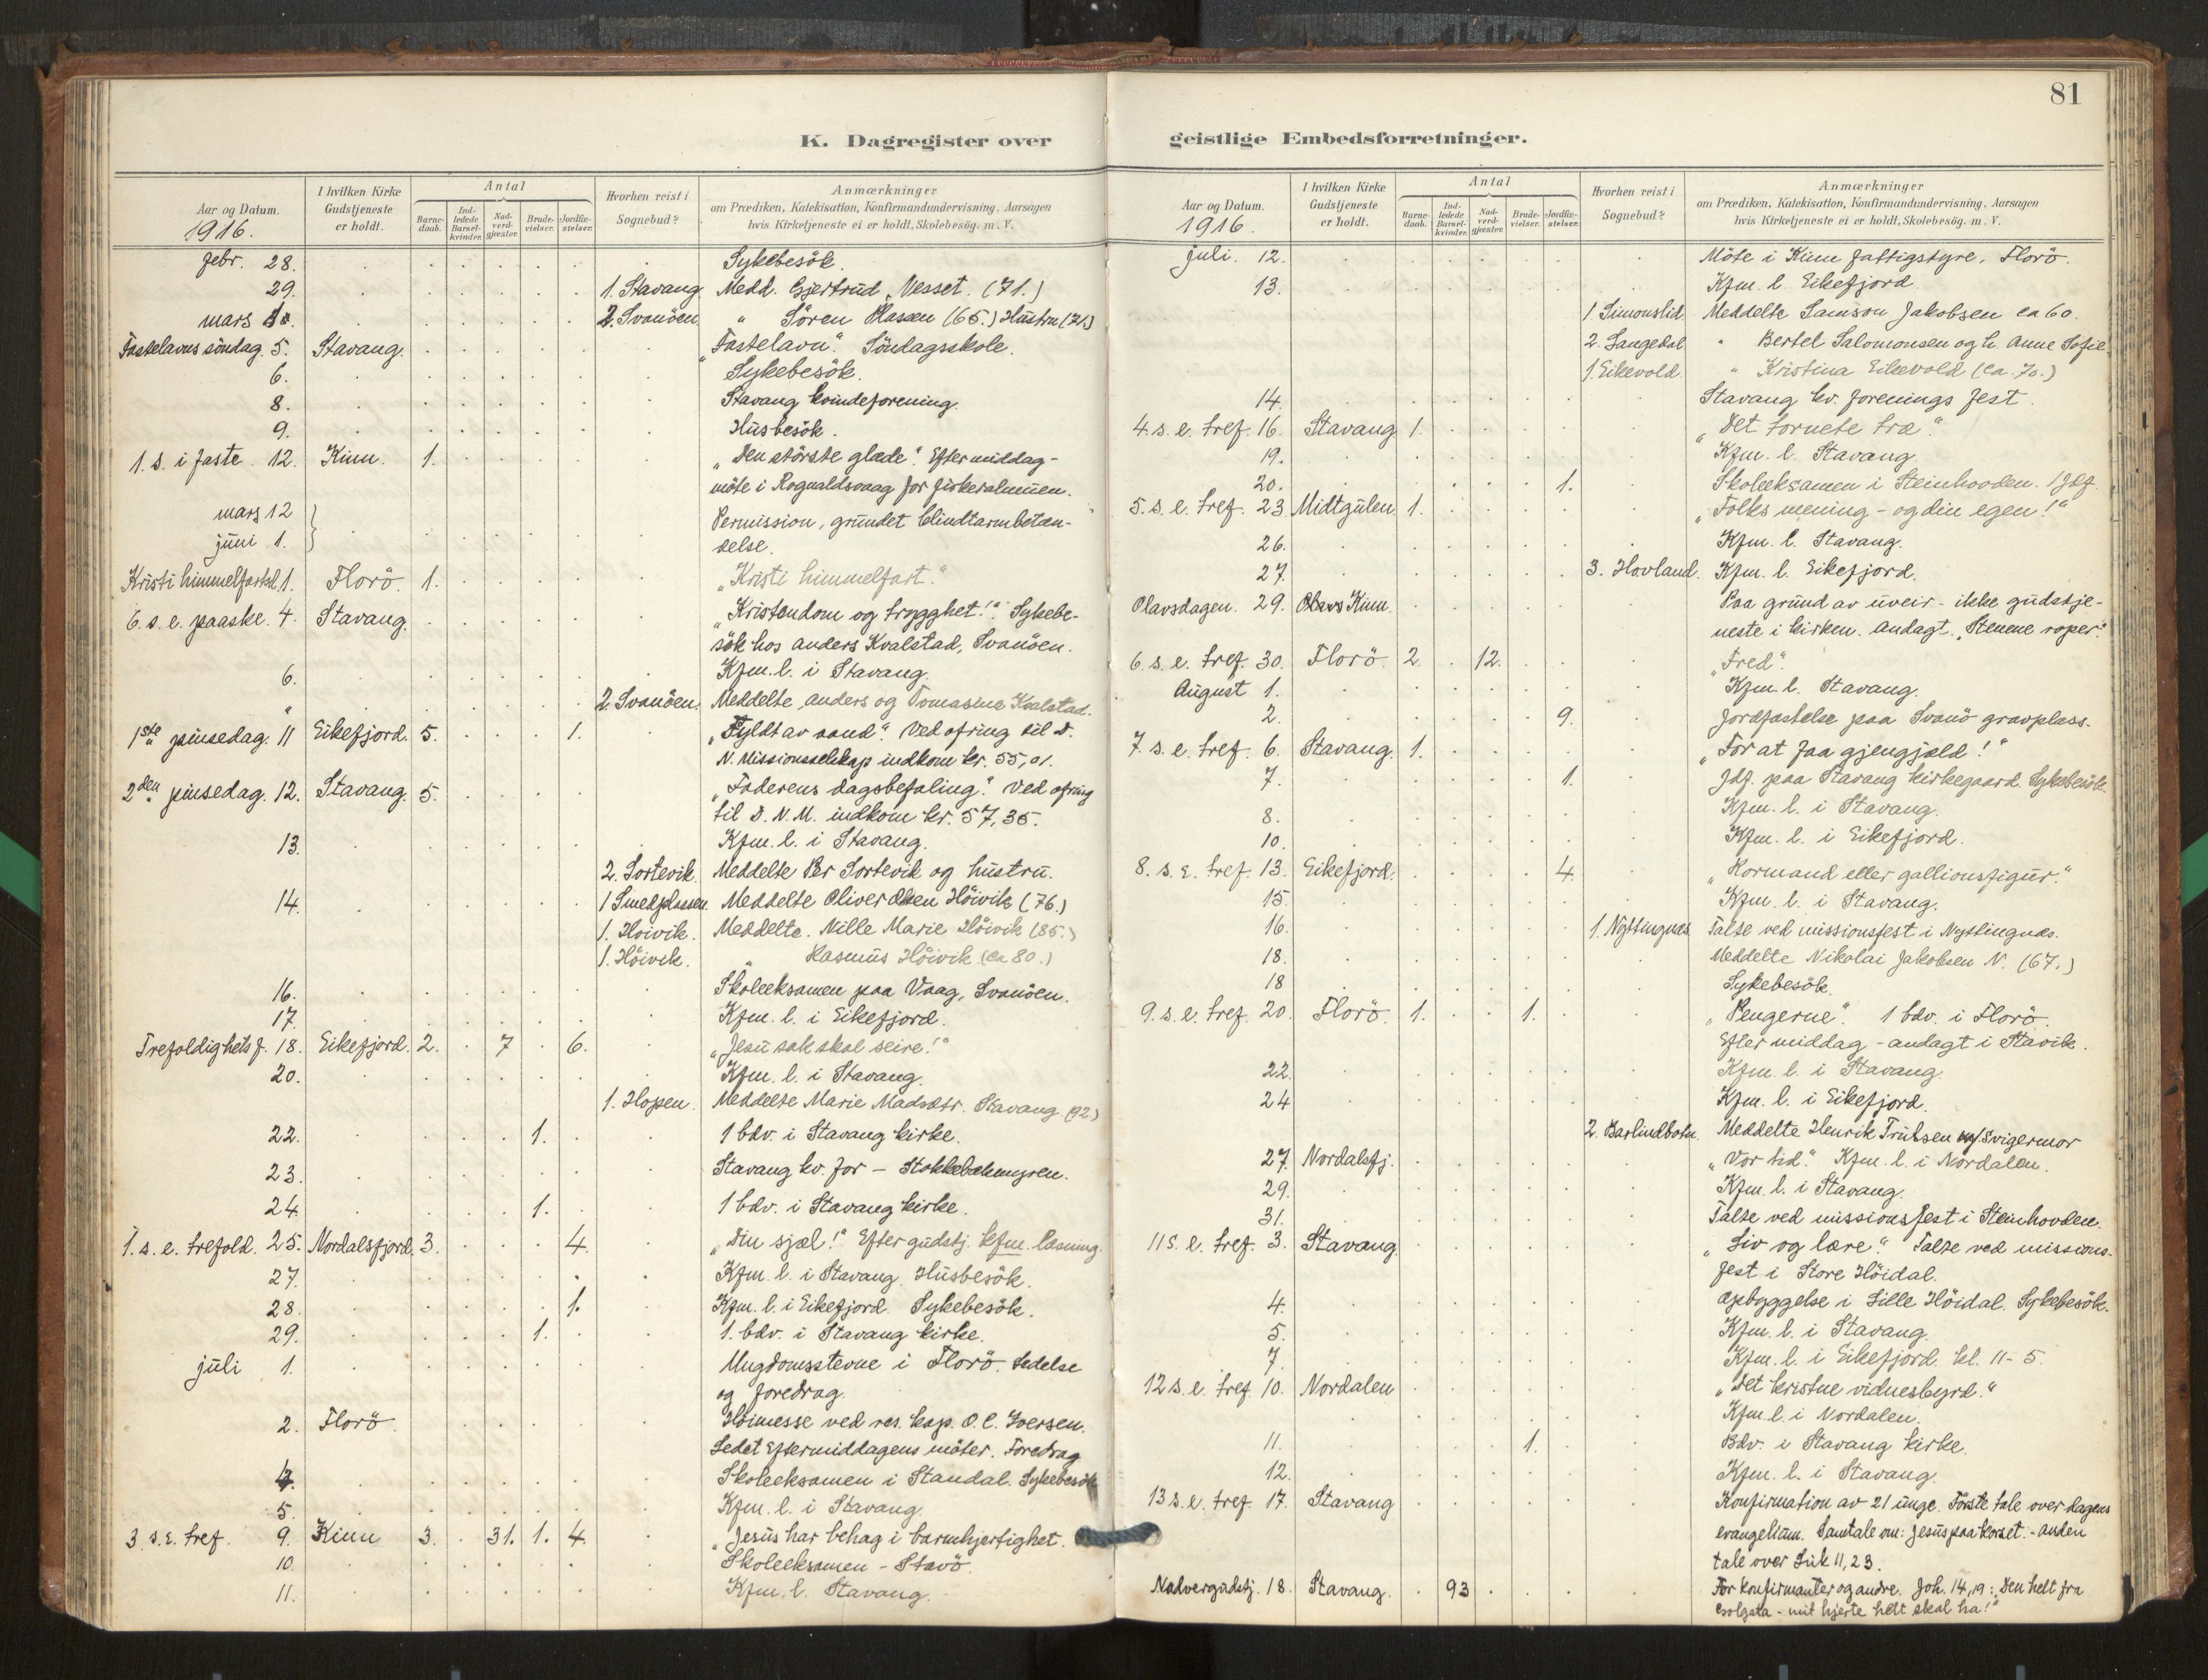 81
K. Dagregister over
geistlige Embedsforretninger.
Aar og Datum. 1916.
I hvilken Kirke Gudstjeneste er holdt.
Antal
Barne-daab.
Ind-ledede Barsel-kvinder.
Nad-verd-gjæster.
Brude-vielser.
Jordfæ-stelser.
Hvorhen reist i Sognebud?
Anmærkninger
om Prædiken, Katekisation, Konfirmandundervisning, Aarsagen
hvis Kirketjeneste ei er holdt, Skolebesøg. m. V.
febr. 28. Sykebesök.
29. 1. Stavang. Medd. Gjertrud Nesset. (71.)
mars 2. Svanöen. " Sören (65.) Hustru (71.)
Fastelavns söndag. 5. Stavang. "Fastelavn". Söndagsskole.
6. Sykebesök.
8. Stavang kvindeforening.
9. Husbesök.
1. s. i faste. 12. Kinn. 1. "Den störste glæde". Eftermiddag-
möte i Rognaldsvaag for fiskeralmuen.
mars 12 Permission, grundet blindtarmbetæn-
juni 1. delse.
Kristi himmelfartsd. 1. Florö. 1. "Kristi himmelfart."
6. s. e. paaske. 4. Stavang. "Kristendom og trygghet!" Sykebe-
sök hos Anders Kvalstad, Svanöen.
6. Kfm. l. i Stavang.
" 2. Svanöen. Meddelte Anders og Tomasine Kvalstad.
1ste pinsedag. 11 Eikefjord. 5. 1. "Fyldt av aand". Ved ofring til D.
N. Missionsselskap indkom kr. 55,01.
2den pinsedag. 12. Stavang. 5. "Faderens dagsbefaling". Ved ofring
til D. N. M. indkom kr. 57,35.
13. Kfm. l. i Stavang.
2. Sortevik. Meddelte Per Sortevik og hustru.
14. 1 Smedplassen. Meddelte Oliver Olsen Höivik (76.)
1. Höivik. Meddelte. Nille Marie Höivik (85.)
1. Höivik. " Rasmus Höivik (ca 80.)
16. Skoleeksamen paa Vaag, Svanöen.
17. Kfm. l. i Eikefjord.
Trefoldighets f. 18. Eikefjord. 2. 7 6. "Jesu sak skal seire!"
20. Kfm. l. i Stavang.
1. Hopen. Meddelte Marie Madsdtr. Stavang (92)
22. 1. 1 bdv. i Stavang kirke.
23. Stavang kv. for –
24. 1. 1 bdv. i Stavang kirke.
1. s. e. trefold. 25. Nordalsfjord. 3. 4. "Din sjæl!" Efter gudstj. kfm. læsning.
27. Kfm. l. i Stavang. Husbesök.
28. 1. Kfm. l. i Eikefjord. Sykebesök.
29. 1. 1. bdv. i Stavang kirke.
juli 1. Ungdomsstevne i Florö. Ledelse
og foredrag.
2. Florö. Höimesse ved res. kap. O. C. Iversen.
Ledet Eftermiddagens möter. Foredrag
4. Skoleeksamen i Standal. Sykebesök
5. Kfm. l. i Stavang.
3. s. e. tref. 9. Kinn 3. 31. 1. 4. "Jesus har behag i barmhjertighet.
10. Skoleeksamen – Stavö.
11. Kfm. l. Stavang.
Aar og Datum. 1916.
I hvilken Kirke Gudstjeneste er holdt.
Antal
Barne-daab.
Ind-ledede Barsel-kvinder.
Nad-verd-gjæster.
Brude-vielser.
Jordfæ-stelser.
Hvorhen reist i Sognebud?
Anmærkninger
om Prædiken, Katekisation, Konfirmandundervisning, Aarsagen
hvis Kirketjeneste ei er holdt, Skolebesøg. m. V.
juli. 12. Möte i Kinn fattigstyre, Florö.
13. Kfm. l. Eikefjord
1. Simonslid. Meddelte Samson Jakobsen ca 60.
2. Langedal " Bertel Salomonsen og h. Anne Sofie.
1. Eikevold. " Kristina Eikevold (ca. 70.)
14. Stavang kv. forenings fest.
4. s. e. tref. 16. Stavang 1. "Det tornete træ".
19. Kfm. l. Stavang.
20. 1. Skoleeksamen i Steinhovden. 1 jdf.
5. s. e. tref. 23. Midtgulen. 1. "Folks mening – og din egen!"
26. Kfm. l. Stavang.
27. 3. Hovland. Kfm. l. Eikefjord.
Olavsdagen. 29. Kinn. Paa grund av uveir – ikke gudstje-
neste i kirken. Andagt. "Stenene roper".
6. s. e. tref. 30. Florö. 2. 12. "Fred".
August 1. Kfm. l. Stavang.
2. 9. Jordfæstelse paa Svanö gravplass.
7. s. e. tref. 6. Stavang. 1. "For at faa gjengjæld!"
7. 1. Jdf. paa Stavang kirkegaard. Sykebesök.
8. Kfm. l. i Stavang.
10. Kfm. l. i Eikefjord.
8. s. e. tref. 13. Eikefjord. 4. "Rormand eller gallionsfigur."
15. Kfm. l. i Stavang.
16. 1. Nyttingnes Talte ved missionsfest i Nyttingnæs.
18. Meddelte Nikolai Jakobsen N. (67.)
18 Sykebesök.
9. s. e. tref. 20. Florö. 1. 1. "Pengerne". 1 bdv. i Florö.
Eftermiddag – andagt i Stavik.
22. Kfm. l. i Stavang.
24 Kfm. l. i Eikefjord.
2. Barlindbotn. Meddelte Henrik Trulsen svigermor
27. Nordalsfj. "Vor tid". Kfm. l. i Nordalen.
29. Kfm. l. i Stavang.
31. Talte ved missionsfest i Steinhovden.
11 s. e. tref. 3. Stavang. "Liv og lære". Talte ved missions-
fest i Store Höidal.
4. Opbyggelse i Lille Höidal. Sykebesök.
5. Kfm. l. i Stavang.
7. Kfm. l. i Eikefjord. kl. 11 - 5.
12 s. e. tref. 10. Nordalen "Det kristne vidnesbyrd."
Kfm. l. i Nordalen.
11. 1. Bdv. i Stavang kirke.
12. Kfm. l. i Stavang.
13 s. e. tref. 17. Stavang Konfirmation av 21 unge. Förste tale over dagens
evangelium. Samtale om: Jesus paa korset. – Anden
tale over Luk 11, 23.
Nadvergudstj. 18. Stavang. 93 For konfirmanter og andre. Joh. 14, 19: "Den helt fra
Golgata – mit hjerte helt skal ha!"